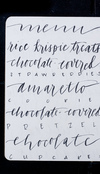 menu
rice krispie treats
chocolate covered
STRAWBERRIES
amaretto
COOKIE
chocolate covered
PRETZEL
chocolate
CUPCAKE